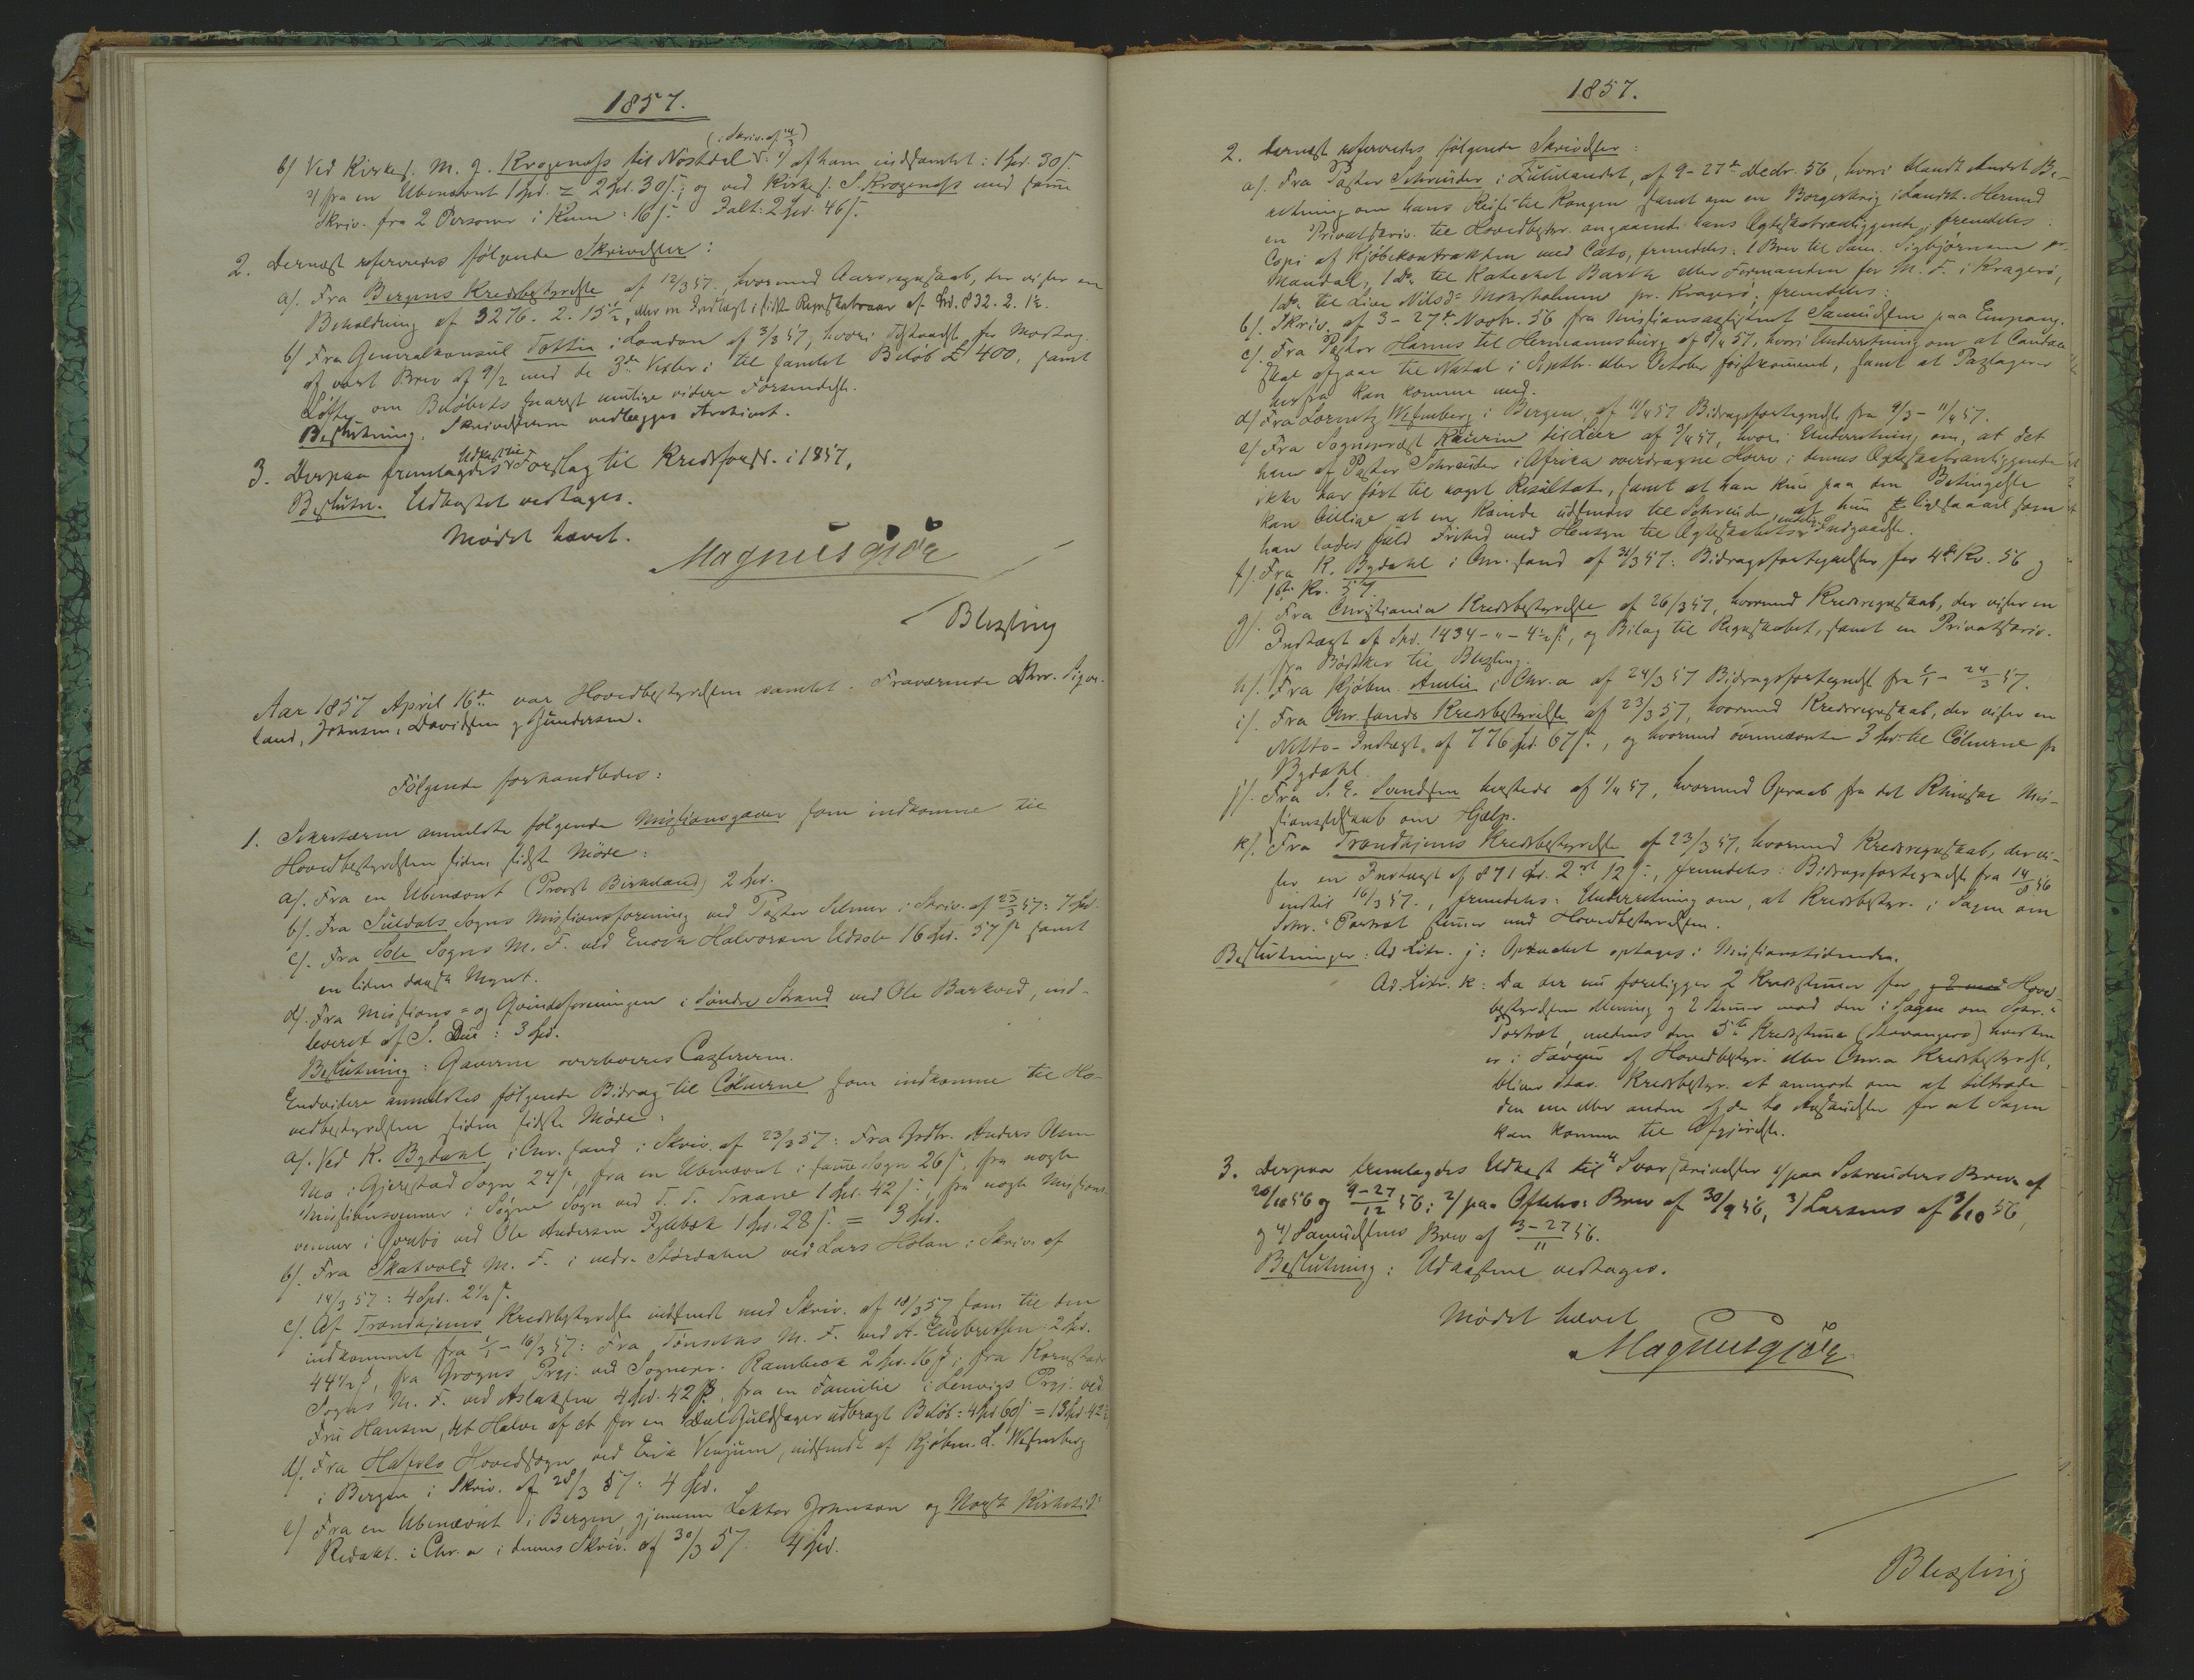 1857.
(i Skriv. af 14/3)
b/. Ved Kirkes. M. J. Krogenæss til Nostdal: 1) af ham indsamlet: 1 Spd. 30 ß.
2) fra en Ubenævnt 1 Spd. = 2 Spd. 30 ß; og ved Kirkes. S. Krogenæss med samme
Skriv. fra 2 Personer i Kinn: 16 ß. Ialt: 2 Spd. 46 ß.
2. Dernæst refereredes følgende Skrivelser:
a/. Fra Bergens Kredsbestyrelse af 12/3 57, hvormed Aarsregnskab, der viser en
Beholdning af 3276. 2. 15½, eller en Indtægt i sidste Regnskabsaar af Spd. 832. 2. 1½.
b/ Fra Generalkonsul Tottie i London af 3/3 57, hvori Tilstaaelse for Modtag.
af vort Brev af 9/2 med de 3de Vexler i til samlet Beløb £ 400, samt
Løfte om Beløbets snarest mulige videre Forsendelse.
Beslutning. Skrivelserne vedlægges Archivet.
3. Derpaa fremlagdes Udkast til Forslag til Kredsforst. i 1857.
Beslutn. Udkastet vedtages.
Mødet hævet.
Magnus Gjør
Blessing
Aar 1857 April 16de var Hovedbestyrelsen samlet. Fraværende Dhrr. Sigve-
land, Johnsen, Davidsen og Gundersen.
Følgende forhandledes:
1. Sekretæren anmeldte følgende Missionsgaver som indkomne til
Hovedbestyrelsen siden sidste Møde:
a/. Fra en Ubenævnt (Provst Birkeland) 2 Spd.
b/. Fra Suldals Sogns Missionsforening ved Pastor Selmer i Skriv. af 23/3 57: 7 Spd.
c/. Fra Sole Sogns M. F. ved Enoch Halvorsen Udsole 16 Spd. 57 ß samt
en liden dansk Mynt.
d/. Fra Missions- og Qvindeforeningen i Søndre Strand ved Ole Barkved, ind-
leveret af S. Due: 3 Spd.
Beslutning: Gaverne overleveres Cassereren.
Endvidere anmeldtes følgende Bidrag til Cölnerne som indkomne til Ho-
vedbestyrelsen siden sidste Møde:
a/. Ved K. Bydahl i Chr.sand i Skriv. af 23/3 57: Fra Grdbr. Anders Olsen
Mo i Gjerestad Sogn 24 ß, fra en Ubenævnt i samme Sogn 26 ß, fra nogle
Missionsvenner i Søgne Sogn ved T. T. Traane 1 Spd. 42 ß, fra nogle Missions-
venner i ved Ole Andersen 1 Spd. 28 ß. = 3 Spd.
b/. Fra Skatvold M. F. i nedr. Stördalen ved Lars Holan i Skriv. af
14/3 57: 4 Spd. 2½ ß.
c/. Af Trondhjems Kredsbestyrelse indsendt med Skriv. af 18/3 57 som til den
indkommet fra 1/1 - 16/3 57: Fra Tönsets M. F. ved A. Embretsen 2 Spd.
44½ ß, fra Prgj. ved Sognepr. Rambech 2 Spd. 16 ß; fra Kornstad
Sogns M. F. ved Aslaksen 4 Spd. 42 ß, fra en Familie i Lenvigs Prgj. ved
Fru Hansen, det Halve af et for en Deel Guldsager udbragt Beløb: 4 Spd. 60 ß = 13 Spd. 42½
d/. Fra Hafslo Hovedsogn ved Erik Venjum, indsendt af Kjøbm. L. Wesenberg
i Bergen i Skriv. af 28/3 57: 4 Spd.
e/ Fra en Ubenævnt i Bergen gjennem Lektor Johnson og Norsk Kirketid:
Redakt. i Chr.a i dennes Skriv. af 30/3 57. 4 Spd.
1857.
2. Dernæst refereredes følgende Skrivelser:
a/. Fra Pastor Schreuder i Zululandet, af 9-27de Decbr. 56, hvori blandt Andet Be-
retning om hans Reise til Kongen samt om en Borgerkrig i Landet. Hermed
en Privatskriv. til Hovedbestyr. angaaende hans Ægteskabsanliggende, fremdeles
Copi af Kjøbekontrakten med Cato, fremdeles: 1 Brev til Sam. Sigbjørnsen pr.
Mandal, 1 do. til Katechet Barth eller Formanden for M. F. i Kragerø,
1 do. til Live Nilsd: Moksholmen pr. Kragerø; fremdeles:
b/. Skriv. af 3-27de Novbr. 56 fra Missionsassistent Samuelsen paa Empang.
c/. Fra Pastor Harms til Hermannsburg af 8/4 57, hvori Underretning om at Candace
skal afgaa til Natal i Septbr. eller October førstkommend, samt at Passagerer
herfra kan komme med.
d/ Fra Lorentz Wesenberg i Bergen, af 11/4 57 Bidragsfortegnelse fra 9/3 - 11/4 57.
e/ Fra Sognepræst Kaurin til Lier af 3/4 57, hvori Underretning om, at det
ham af Pastor Schreuder i Africa overdragne Hverv i dennes Ægteskabsanliggende
ikke har ført til noget Resultat, samt at han kun paa den Betingelse
kan billige at en Kvinde udsendes til Schreuder, at hun ligesaavel som
han lades fuld Frihed med Hensyn til Ægteskabets endelig Indgaaelse.
f/. Fra K. Bydahl i Chr.sand af 31/3 57: Bidragsfortegnelser for 4de Kv. 56 og
1ste Kv. 57.
g/. Fra Christiania Kredsbestyrelse af 26/3 57, hvormed Kredsregnskab, der viser en
Indtægt af Spd. 1434 - " - 4½ ß, og Bilag til Regnskabet, samt en Privatskriv.
fra Bödtker til Blessing.
h/. Fra Kjøbm. Amlie i Chr.a af 24/3 57 Bidragsfortegnelse fra 1/1 - 24/3 57.
i/. Fra Chr.sands Kredsbestyrelse af 23/3 57, hvormed Kredsregnskab, der viser en
Netto-Indtægt af 776 Spd. 67 ß, og hvormed ovennævnte 3 Spd. til Cölnerne fra
Bydahl.
j/. Fra S. E. Svendsen hersteds af 1/4 57, hvormed Opraab fra det Rhinske Mis-
sionsselskab om Hjælp.
k/. Fra Trondhjems Kredsbestyrelse af 23/3 57, hvormed Kredsregnskab, der vi-
ser en Indtægt af 871 Spd. 2 ort 12 ß, fremdeles: Bidragsfortegnelse fra 14/8 56
indtil 16/3 57., fremdeles: Underretning om, at Kredsbestyr. i Sagen om
Schr.s Portræt stemmer med Hovedbestyrelsen.
Beslutninger: Ad Litr. j: Opraabet optages i Missionstidenden.
Ad. Litr. k: Da der nu foreligger 2 Kredsstemmer for Hoved-
bestyrelsens Mening og 2 Stemmer mod den i Sagen om Schr.s
Portræt, medens den 5te Kredsstemme (Stavangers) hverken
er i Faveur af Hovedbestyr. eller Chr.a Kredsbestyrelse,
bliver Stav. Kredsbestyr. at anmode om at tiltræde
den ene eller anden af de to Anskuelser for at Sagen
kan komme til Afgjørelse.
3. Derpaa fremlagdes Udkast til 4 Svarskrivelser 1/ paa Schreuders Breve af
20/10 56 og 9-27/12 56; 2/ paa Oftebros Brev af 30/9 56, 3/ Larsens af 3/10 56,
og 4/ Samuelsens Brev af 3-27/11 56.
Beslutning: Udkastene vedtages.
Mødet hævet
Magnus Gjør
Blessing